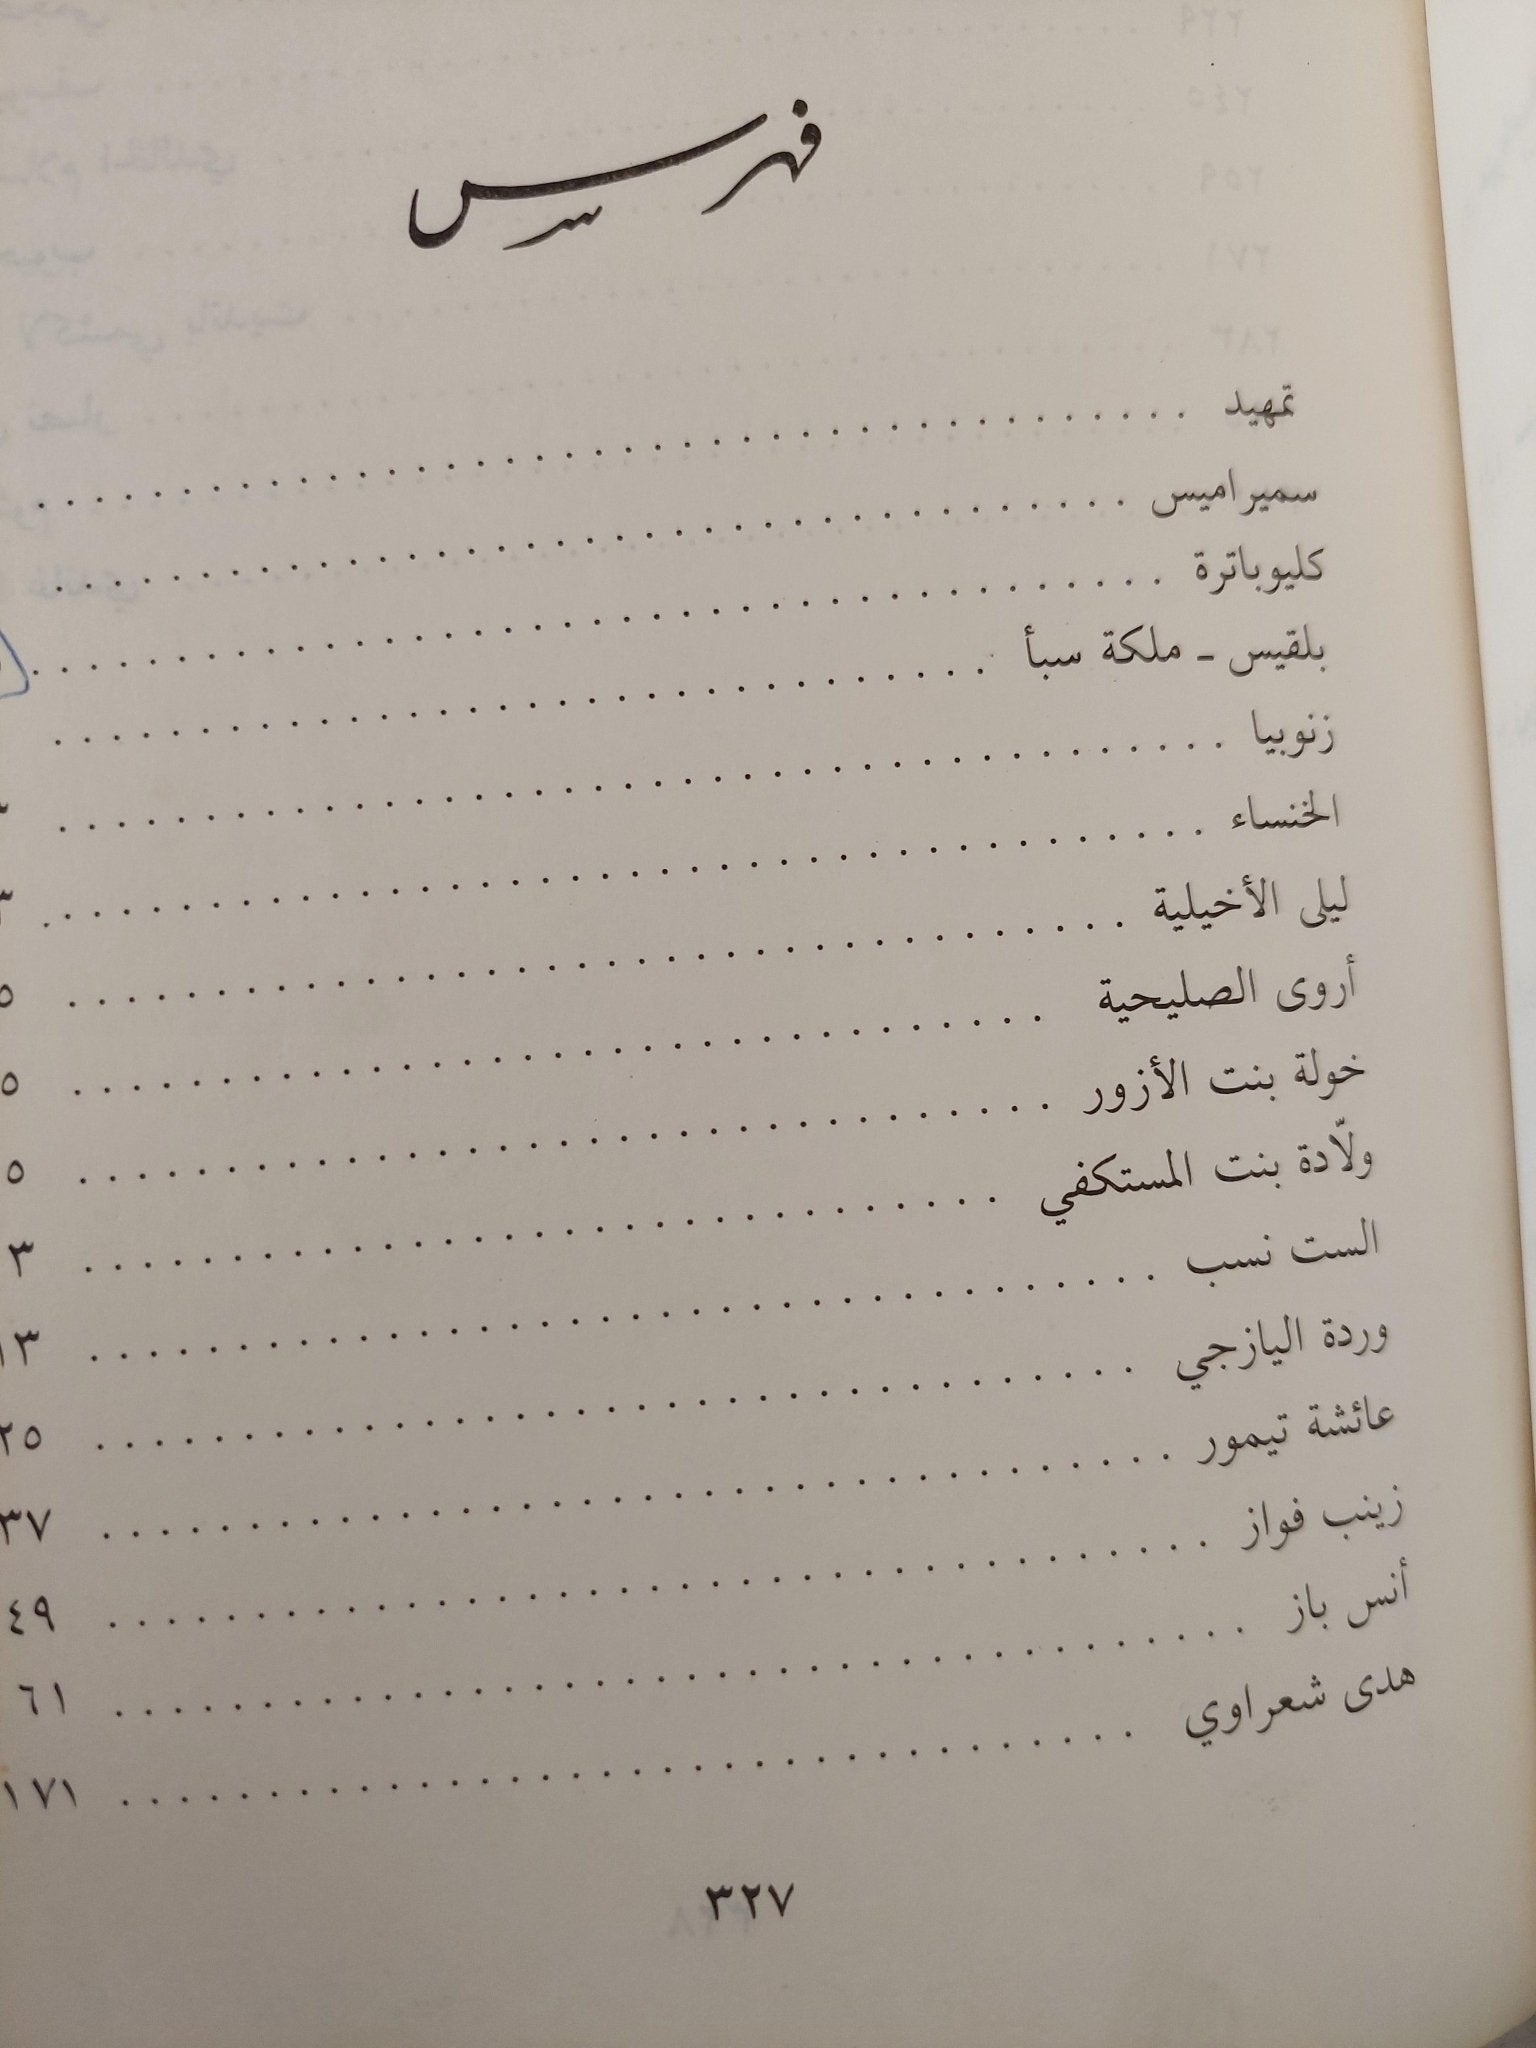 فهرس
تمهيد
سميراميس
كليوباترة
بلقيس - ملكة سبأ
زنوبيا
الخنساء
ليلى الأخيلية
أروى الصليحية
خولة بنت الأزور
ولّادة بنت المستكفي
الست نسب
وردة اليازجي
عائشة تيمور
زينب فواز
أنس باز
هدى شعراوي ١٧١
٣٢٧